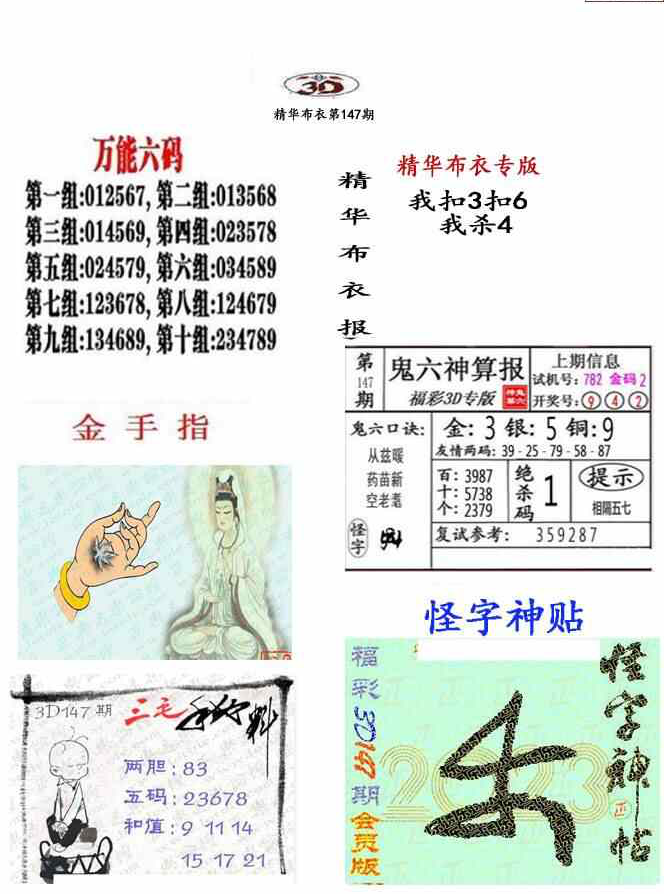 3D
精华布衣第147期
万能六码
第一组:012567,第二组:013568
第三组:014569,第四组:023578
第五组:024579,第六组:034589
第七组:123678,第八组:124679
第九组:134689,第十组:234789
精华布衣报
精华布衣专版
我扣3扣6
我杀4
第147期
鬼六神算报
福彩3D专版
上期信息
试机号:782 金码2
开奖号:9 4 2
鬼六口诀:
从兹暖
药苗新
空老耄
怪字
金:3 银:5 铜:9
友情两码:39-25-79-58-87
百:3987
十:5738
个:2379
绝杀码 1
提示
相隔五七
复试参考: 359287
金手指
怪字神贴
3D147期
三毛
两胆:83
五码:23678
和值:9 11 14
15 17 21
福彩3D147期会员版
2023
怪字神帖